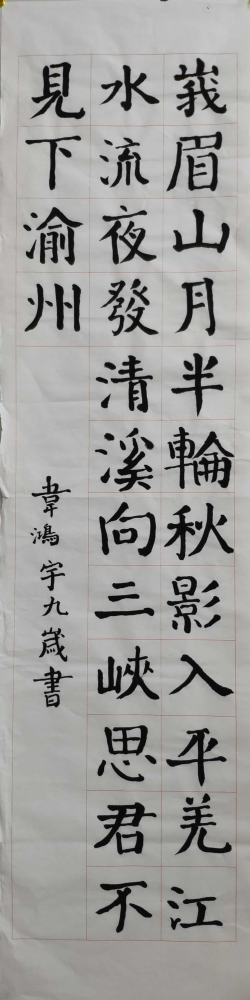 峩眉山月半輪秋影入平羌江
水流夜發清溪向三峽思君不
見下渝州
韋鴻宇九歲書